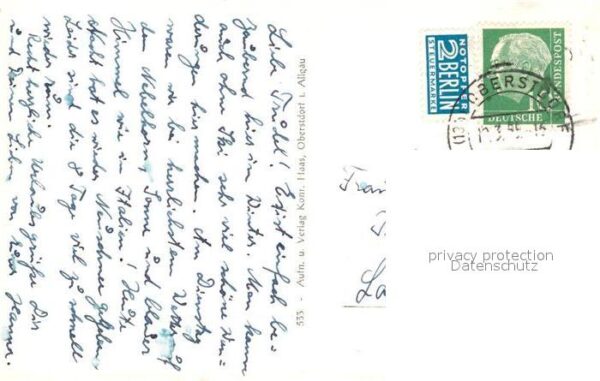 Liebe Trudel! Es ist einfach be-
zaubernd hier im Winter. Man kann
auch ohne Ski sehr viel schöne Wan-
derungen hier machen. Am Dienstag
waren wir bei herrlichstem Wetter auf
dem Nebelhorn, Sonne und blauer
Himmel wie in Italien! Heute
Nacht hat es wieder Neuschnee gegeben.
Leider sind die 8 Tage viel zu schnell
wieder um.
Recht herzliche Urlaubsgrüße Dir
und Deinen Lieben von
Hanna.
533 - Aufn. u. Verlag Konr. Haas, Oberstdorf i. Allgäu
NOTOPFER
2 BERLIN
STEUERMARKE
DEUTSCHE
BUNDESPOST
OBERSTDORF
privacy protection
Datenschutz